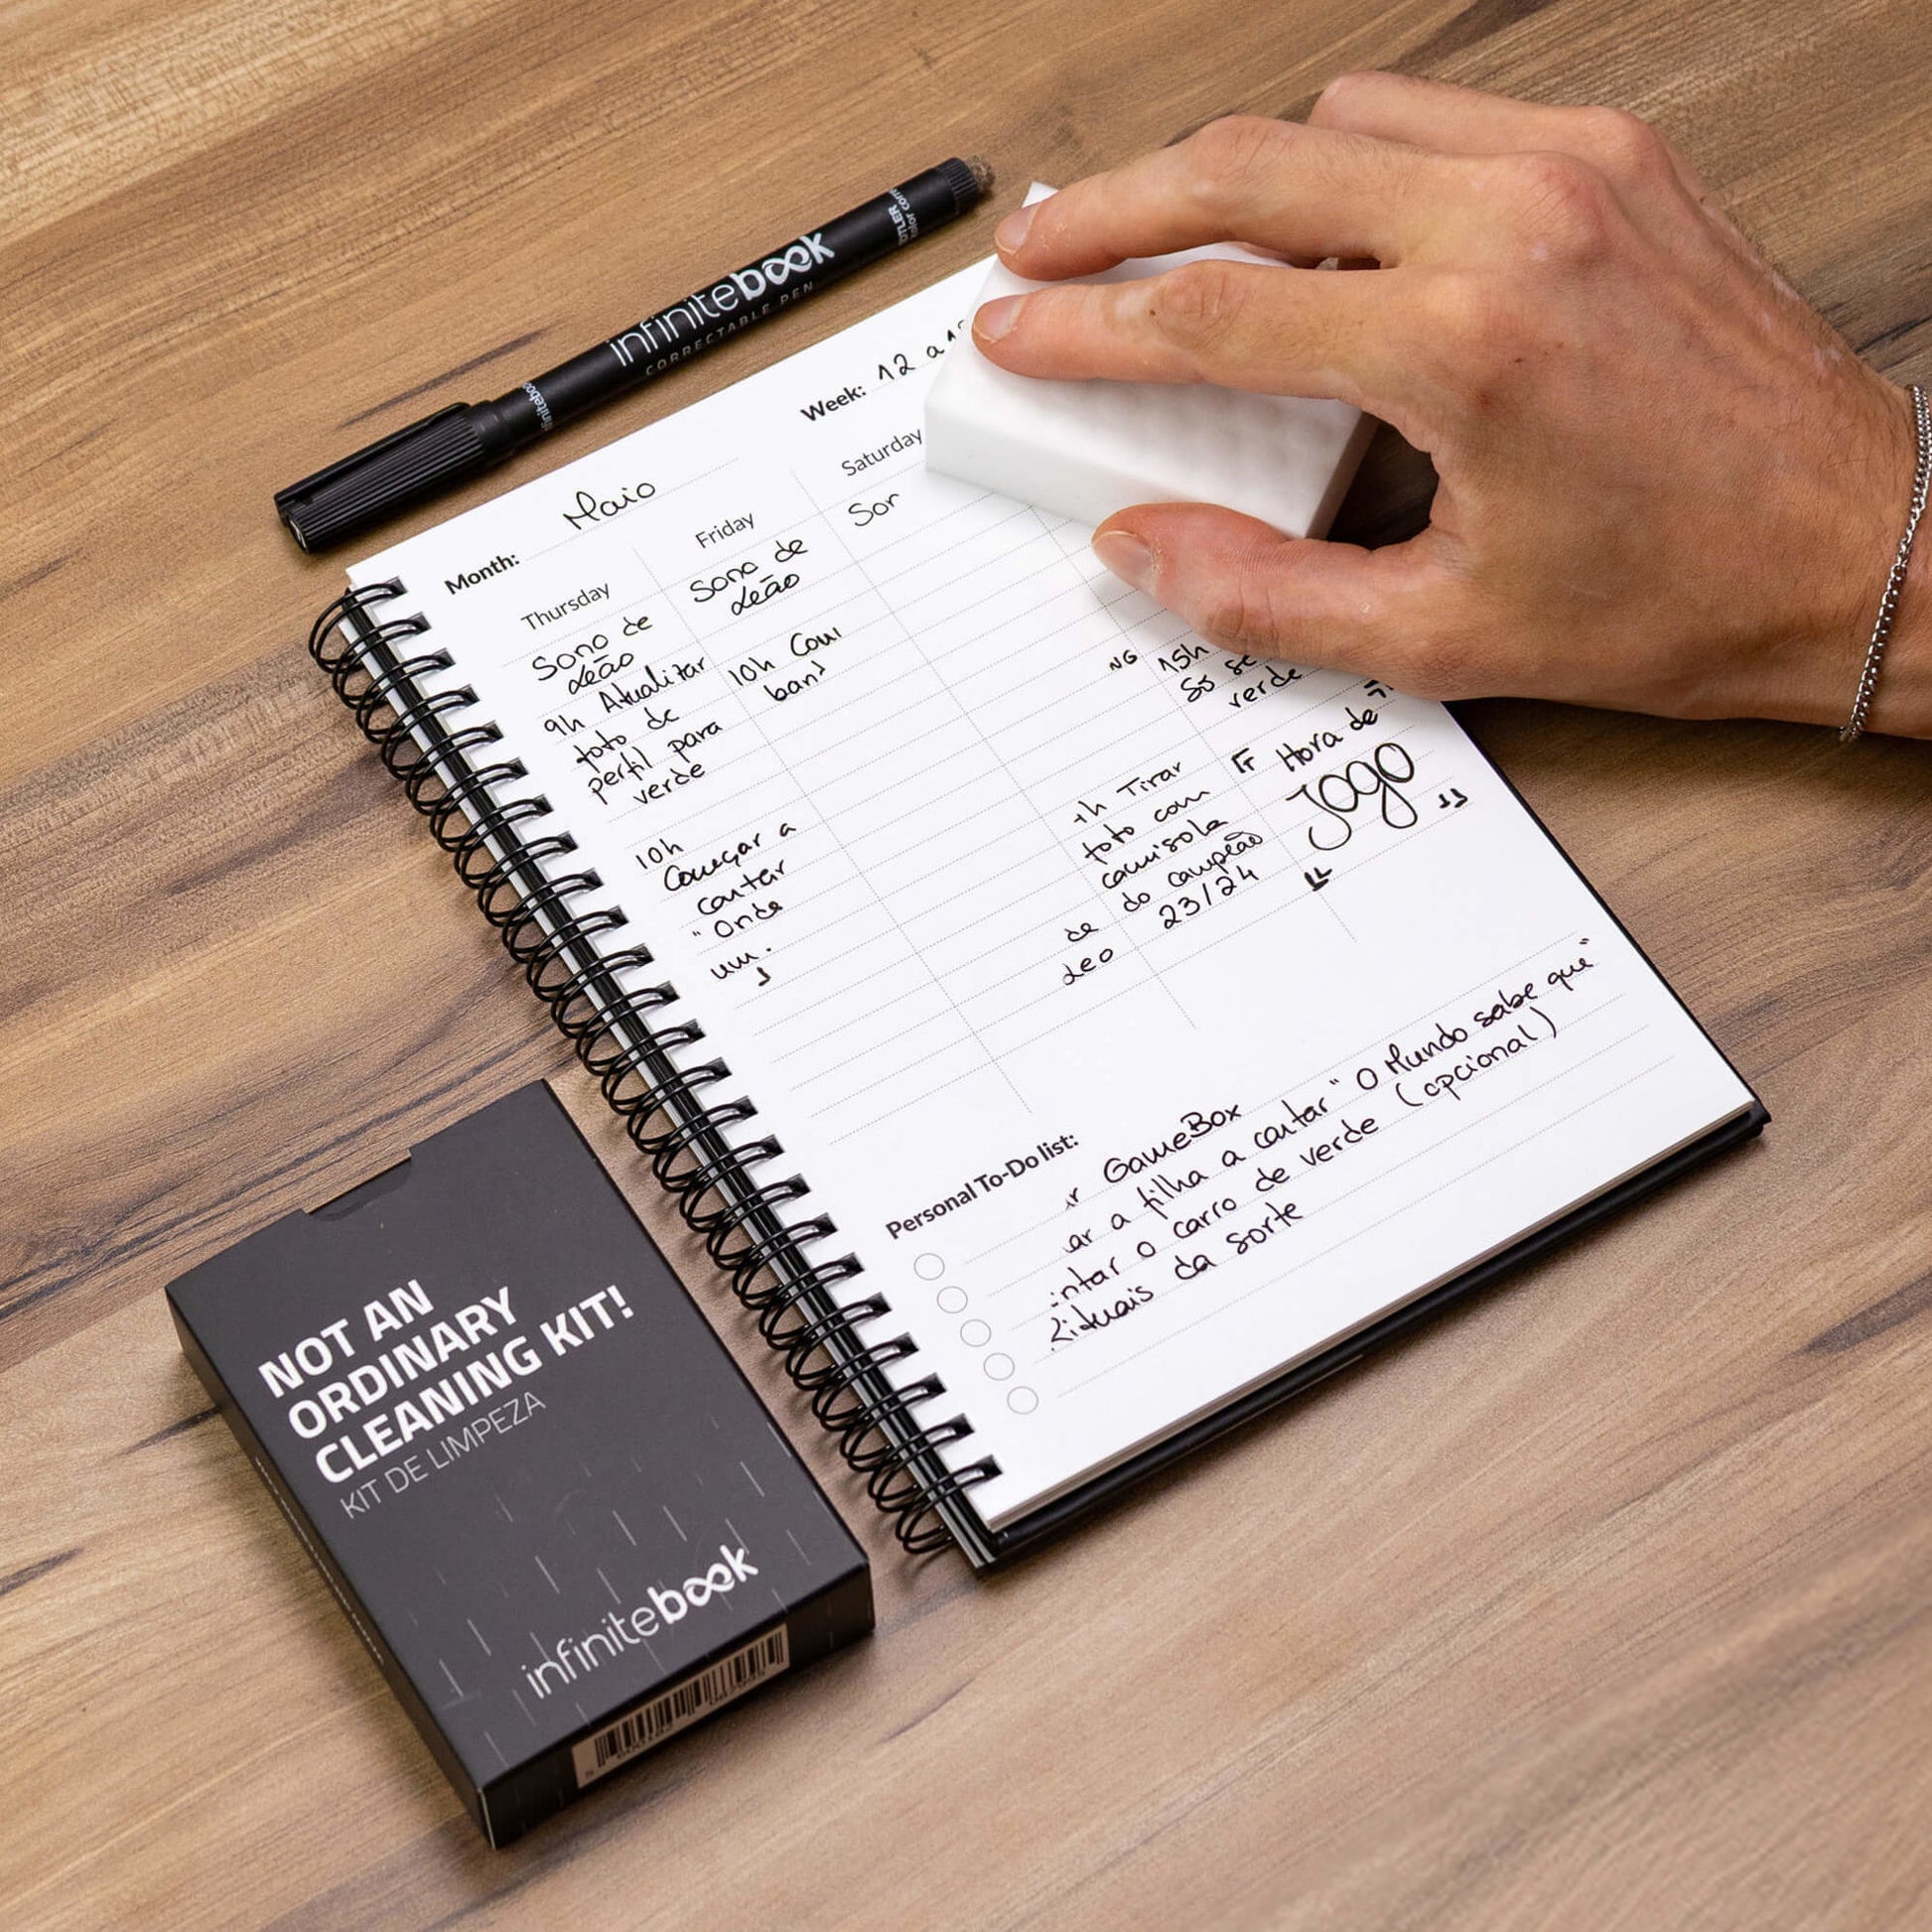 infinitebook
CORRECTABLE PEN
infinitebook
Month: Maio
Week: 12 a
Thursday
Sono de
Leão
9h Atualizar
foto de
perfil para
verde
10h
Começar a
cantar
"Onde
um
Friday
Sono de
Leão
10h
Saturday
Son
NG
de
Leo
Tirar
foto com
camisola
do campeão
23/24
15h
Só se
verde
Hora de
Jogo
Personal To-Do list:
GameBox
a filha a cantar "O Mundo sabe que"
o carro de verde (opcional)
Rituais da sorte
NOT AN
ORDINARY
CLEANING KIT!
KIT DE LIMPEZA
infinitebook